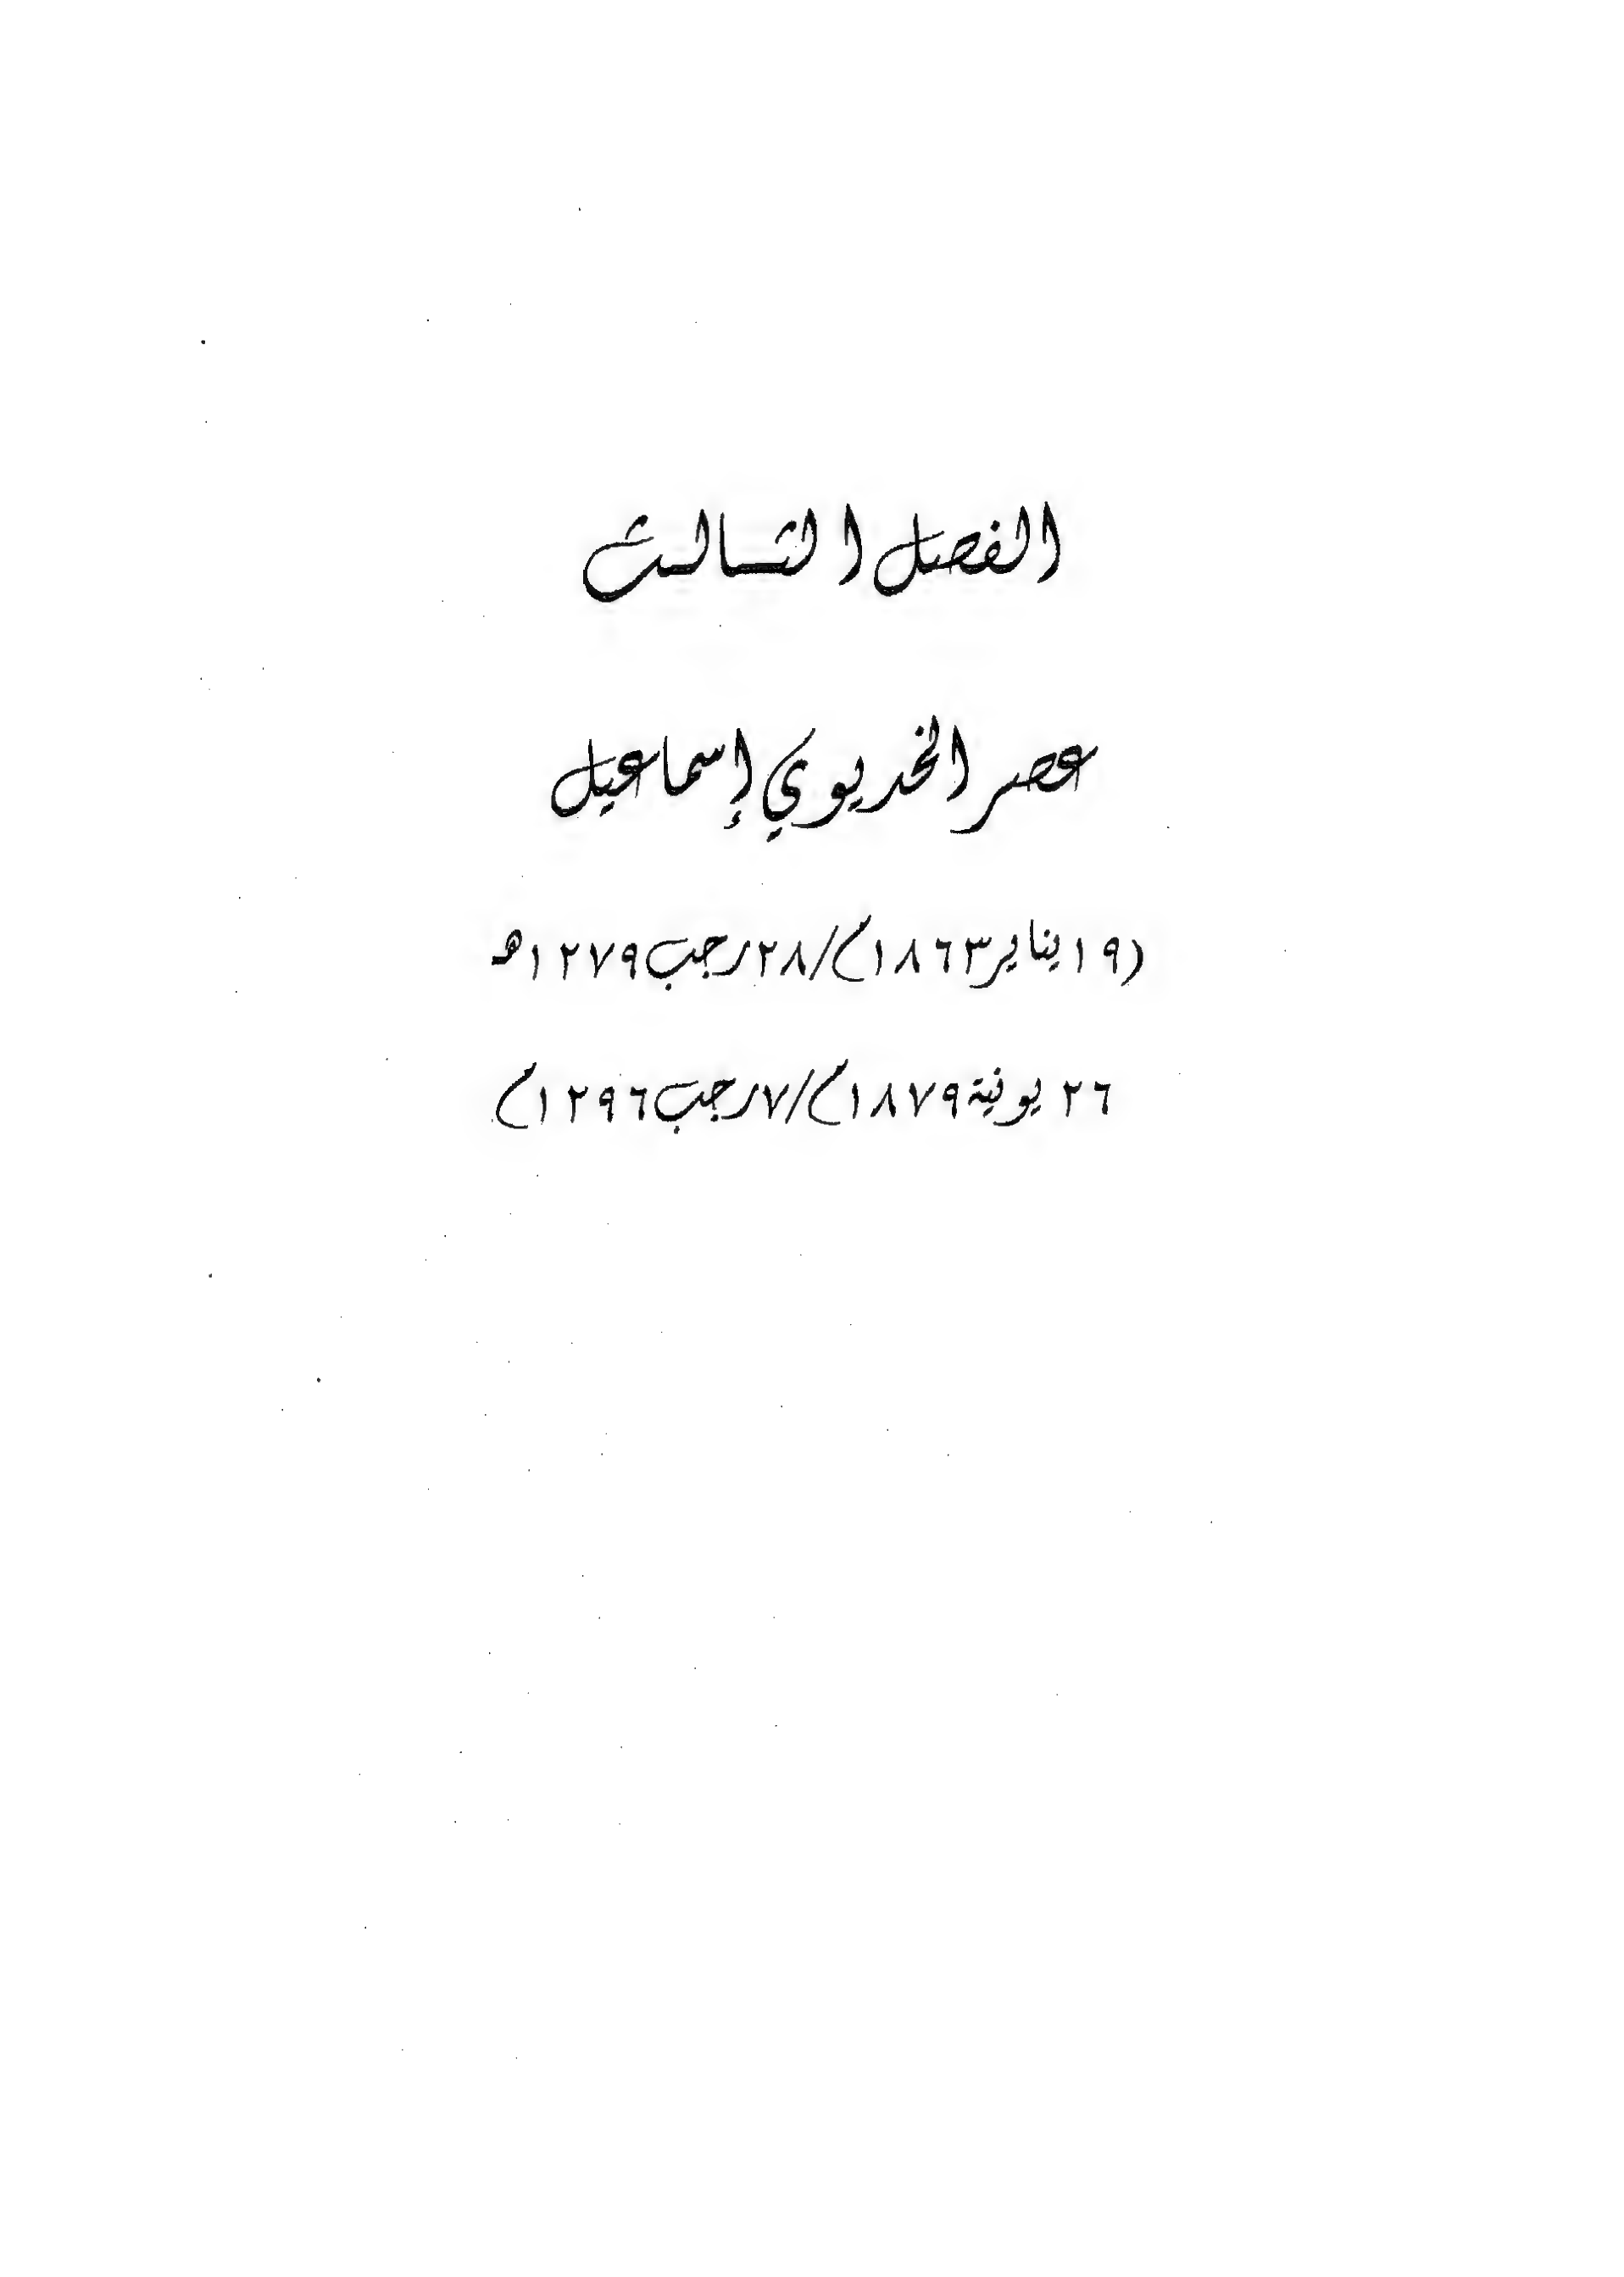 الفصل الثالث
عصر الخديوي إسماعيل
(١٩ يناير ١٨٦٣م/٢٨ رجب ١٢٧٩هـ
٢٦ يونية ١٨٧٩م/٧ رجب ١٢٩٦م